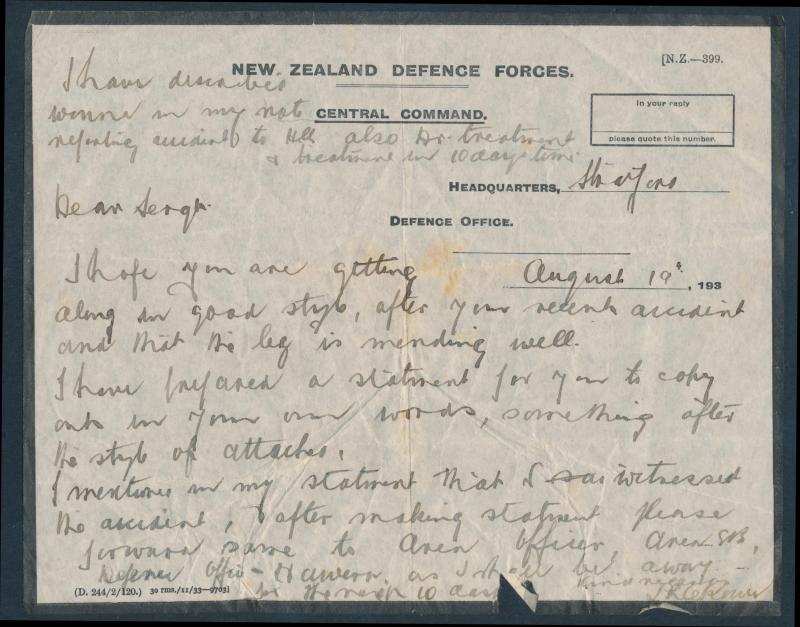 NEW ZEALAND DEFENCE FORCES.
[N.Z.—399.
CENTRAL COMMAND.
In your reply
please quote this number.
I have described
in my not
reporting accident to HQ also Dr. treatment
& treatment in 10 days time
HEADQUARTERS, Stratford
DEFENCE OFFICE.
August 19, 193
Dear Sergt.
I hope you are getting
along in good style, after your recent accident
and that the leg is mending well.
I have prepared a statment for you to copy
out in your own words, something after
the style of attached.
I mentioned in my statment that I witnessed
the accident, & after making statment please
forward same to Area Officer, Area
Defence Office - Hawera, as I shall be away
for the next 10 days
Kind regards
(D. 244/2/120.) 30 rms./11/33—9703]